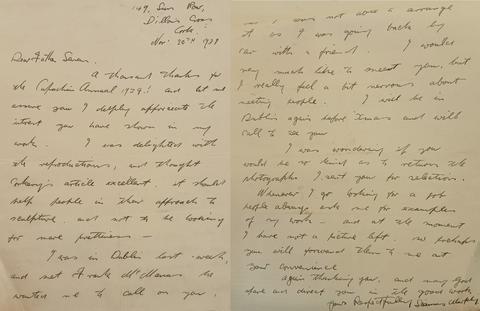 149, Sun Row,
Dillon's Cross
Cork.
Nov. 30TH 1938
Dear Father Senan.
A thousand thanks for
the Capuchin Annual 1939! and let me
assure you I deeply appreciate the
interest you have shown in my
work. I was delighted with
the reproductions, and thought
article excellent. it should
help people in their approach to
sculpture. and not to be looking
for mere prettiness —
I was in Dublin last week,
and met Frank McManus. he
wanted me to call on you,
I was not able to arrange
it as I was going back by
car with a friend. I would
very much like to meet you, but
I really feel a bit nervous about
meeting people. I will be in
Dublin again before Xmas and will
call to see you
I was wondering if you
would be so kind as to return the
photographs I sent you for selection.
Whenever I go looking for a job
people always ask me for examples
of my work — and at the moment
I have not a picture left. so perhaps
you will forward them to me at
your convenience
Again thanking you, and may God
spare and direct you in the good work
Yours Respectfully Seamus Murphy